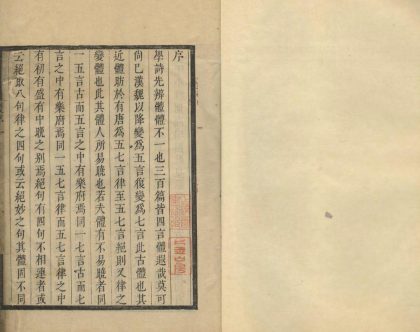 序
學詩先辨體體不一也三百篇皆四言體遐哉莫可
尙已漢魏以降變爲五言復變爲七言此古體也其
近體昉於有唐爲五七言律至五七言絕則又律之
變體也此其體人所易曉也若夫體有不易曉者同
一五言古而五言之中有樂府焉同一七言古而七
言之中有樂府焉同一五七言律而五七言律之中
有初有盛有中晚之别焉絕句有四句不相連者或
云絕取八句律之四句或云絕妙之句其體固不同